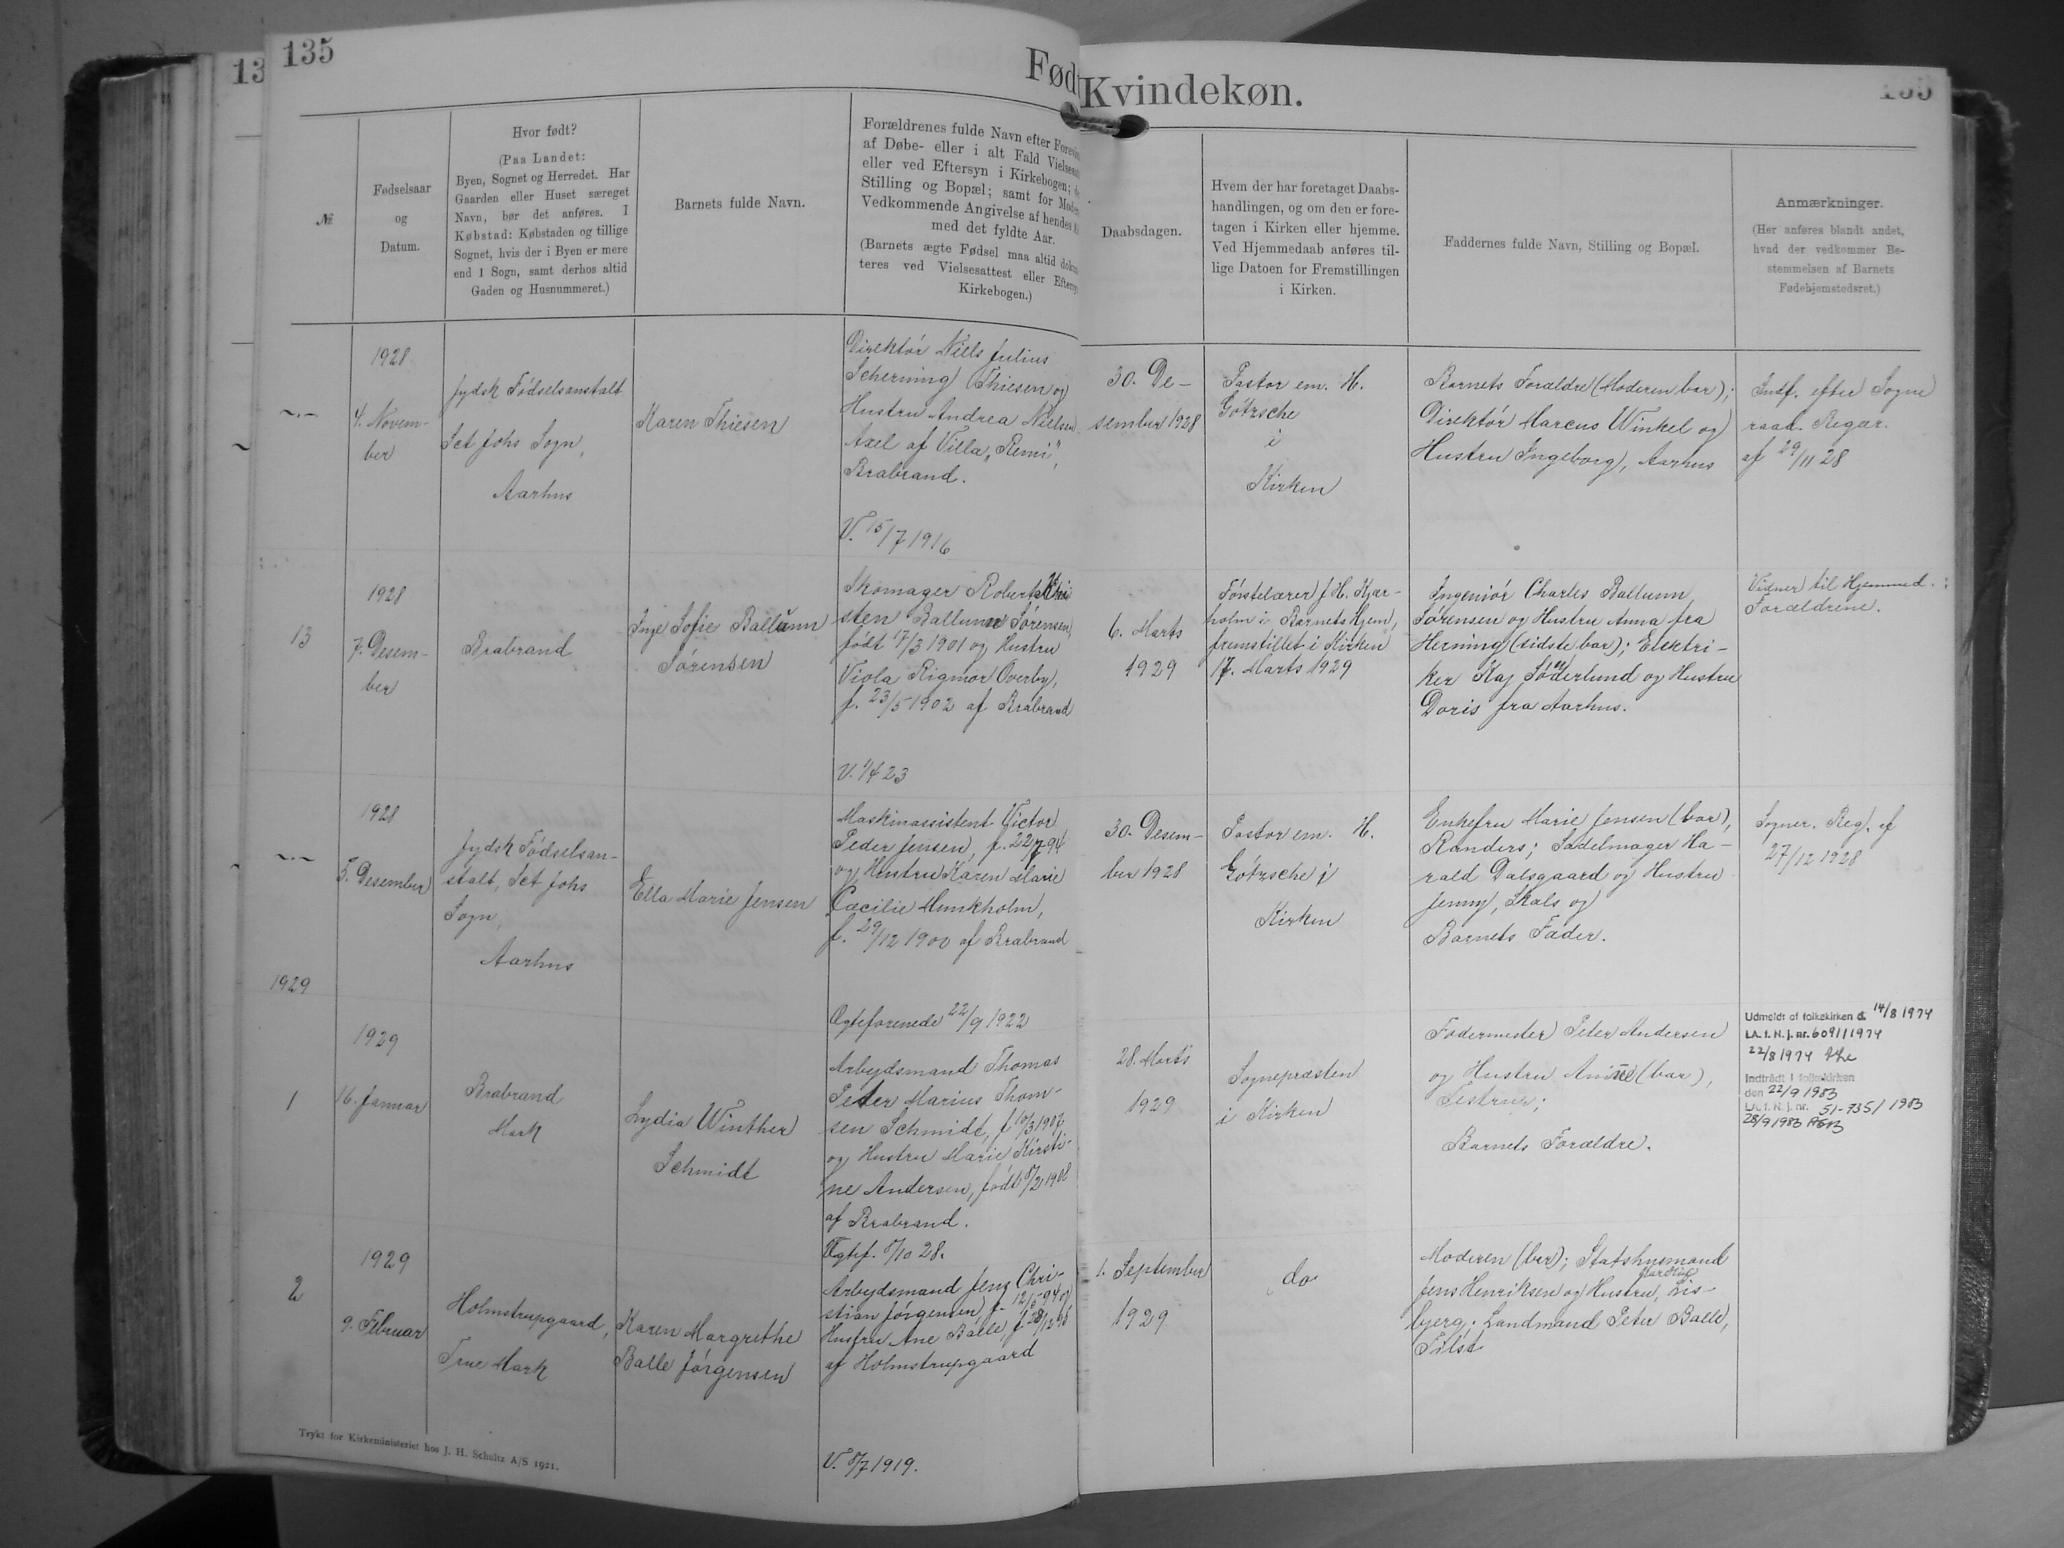 135
13
Fød
Kvindekøn.
№
Fødselsaar
og
Datum.
Hvor født?
(Paa Landet:
Byen, Sognet og Herredet. Har
Gaarden eller Huset særeget
Navn, bør det anføres. I
Købstad: Købstaden og tillige
Sognet, hvis der i Byen er mere
end 1 Sogn, samt derhos altid
Gaden og Husnummeret.)
Barnets fulde Navn.
Forældrenes fulde Navn efter
af Døbe- eller i alt Fald
eller ved Eftersyn i Kirkebogen;
Stilling og Bopæl; samt for
Vedkommende Angivelse af hendes
med det fyldte Aar.
(Barnets ægte Fødsel maa altid
teres ved Vielsesattest eller
Kirkebogen.)
Daabsdagen.
Hvem der har foretaget Daabs-
handlingen, og om den er fore-
tagen i Kirken eller hjemme.
Ved Hjemmedaab anføres til-
lige Datoen for Fremstillingen
i Kirken.
Faddernes fulde Navn, Stilling og Bopæl.
Anmærkninger.
(Her anføres blandt andet,
hvad der vedkommer Be-
stemmelsen af Barnets
Fødehjemstedsret.)
1928
4. Novem-
ber
Jydsk Fødselsanstalt
Sct Johs Sogn,
Aarhus
Karen Thiesen
Direktør Niels Julius
Scherning Thiesen og
Hustru Andrea Nielsen
Axel af Villa „Remi",
Brabrand.
V. 15/7 1916
30. De-
sember 1928
Pastor em. H.
Götzsche
i
Kirken
Barnets Forældre (Moderen bar);
Direktør Marcus Winkel og
Hustru Ingeborg, Aarhus
Indf. efter Sogne
raad. Regær.
af 29/11 28
13
1928
7. Desem-
ber
Brabrand
Inge Sofie Ballunn
Sørensen
Skomager Robert Kri
sten Ballunn Sørensen,
født 17/3 1901 og Hustru
Viola Rigmor Overby,
f. 23/5 1902 af Brabrand
V. 1/4 23
6. Marts
1929
Førstelærer J. H. Kjær-
holm i Barnets Hjem,
fremstillet i Kirken
17. Marts 1929
Ingeniør Charles Ballunn
Sørensen og Hustru Anna fra
Herning (sidste bar); Elektri-
ker Kaj Søderlund og Hustru
Doris fra Aarhus.
Vidner til Hjemmed.:
Forældrene.
1928
5. Desember
Jydsk Fødselsan-
stalt, Sct Johs
Sogn,
Aarhus
Ella Marie Jensen
Maskinassistent Victor
Peder Jensen, f. 22/7 94
og Hustru Karen Marie
Cæcilie Munkholm,
f. 29/12 1900 af Brabrand
Ægteforenede 22/9 1922
30. Desem-
ber 1928
Pastor em. H.
Götzsche i
Kirken
Enkefru Marie Jensen (bar),
Randers; Sadelmager Ha-
rald Dalsgaard og Hustru
Jenny, Skals og
Barnets Fader.
Sogner. Reg. af
27/12 1928
1929
1
1929
16. Januar
Brabrand
Mark
Lydia Winther
Schmidt
Arbejdsmand Thomas
Peter Marius Thom-
sen Schmidt, f. 10/3 1907,
og Hustru Marie Kirsti-
ne Andersen, født 8/2 1908
af Brabrand.
Ægtef. 8/10 28.
28. Marts
1929
Sognepræsten
i Kirken
Fodermester Peter Andersen
og Hustru Anine (bar),
Testrup;
Barnets Forældre.
Udmeldt af folkekirken d. 14/8 1974
LA. f. N. j. nr. 6091/1974
22/8 1974
Indtrådt i folkekirken
den 22/9 1983
LA. f. N. j. nr. 51-735/1983
28/9 1983
2
1929
9. Februar
Holmstrupgaard,
True Mark
Karen Margrethe
Balle Jørgensen
Arbejdsmand Jens Chri-
stian Jørgensen, f. 12/5 94 og
Hustru Ane Balle, f. 28/12 95
af Holmstrupgaard
V. 8/7 1919.
1. September
1929
do
Moderen (bar); Statshusmand
Jens Henriksen og Hustru, Lis-
bjerg. Landmand Peter Balle,
Tilst
Trykt for Kirkeministeriet hos J. H. Schultz A/S 1921.